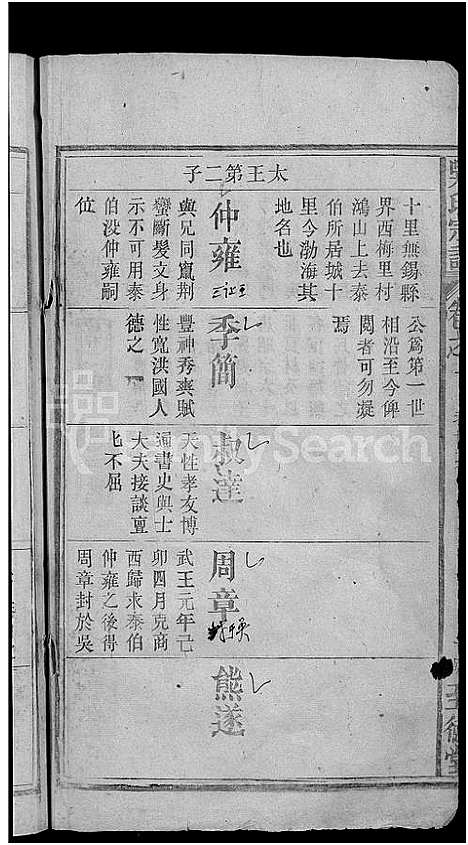 十里無錫縣
界西梅里村
鴻山上去泰
伯所居城十
里今渤海其
地名也
太王第二子
仲雍
與兄同竄荆
蠻斷髮文身
示不可用泰
伯沒仲雍嗣
位
公爲第一世
相沿至今俾
閱者可勿凝
焉
季簡
豐神秀爽賦
性寬洪國人
德之
叔達
天性孝友博
通書史與士
大夫接談亶
亶不屈
周章
武王元年己
卯四月克商
西歸求泰伯
仲雍之後得
周章封於吳
熊遂
FamilySearch